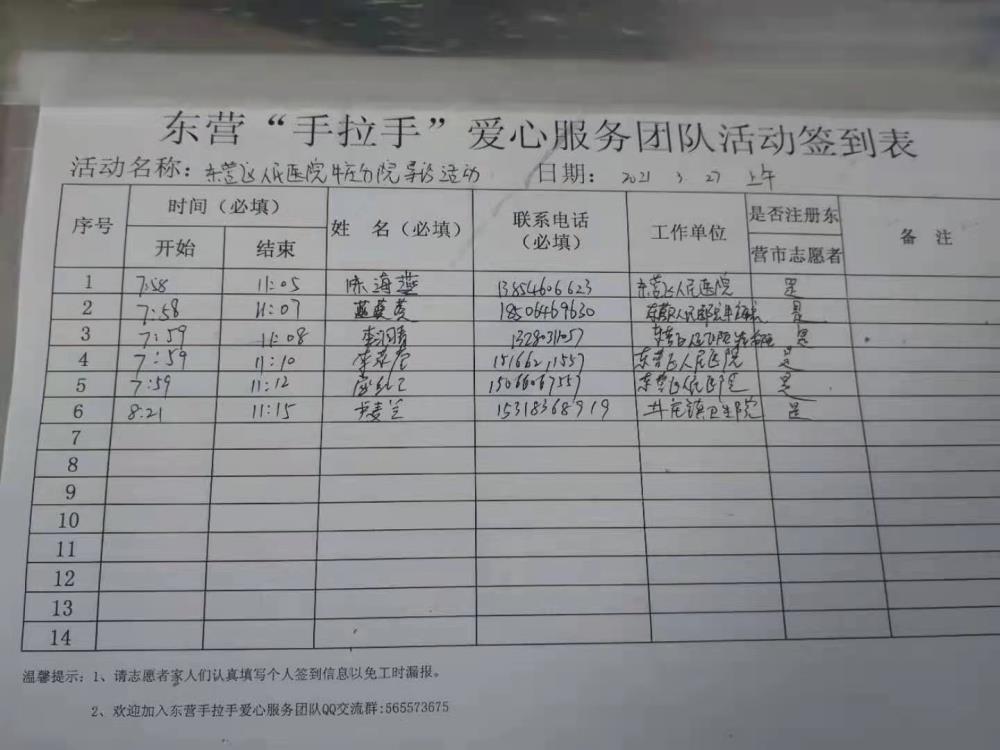 东营“手拉手”爱心服务团队活动签到表
活动名称：东营区人民医院牛庄分院导诊活动 日期： 2021 3 27 上午
序号 时间（必填） 姓 名（必填） 联系电话（必填） 工作单位 是否注册东营市志愿者 备 注
开始 结束
1 7:58 11:05 陈海燕 13854606623 东营区人民医院 是
2 7:58 11:07 18506469630 是
3 7:59 11:08 是
4 7:59 11:10 东营区人民医院 是
5 7:59 11:12 东营区人民医院 是
6 8:21 11:15 15318368919 牛庄镇卫生院 是
7
8
9
10
11
12
13
14
温馨提示：1、请志愿者家人们认真填写个人签到信息以免工时漏报。
2、欢迎加入东营手拉手爱心服务团队QQ交流群:565573675